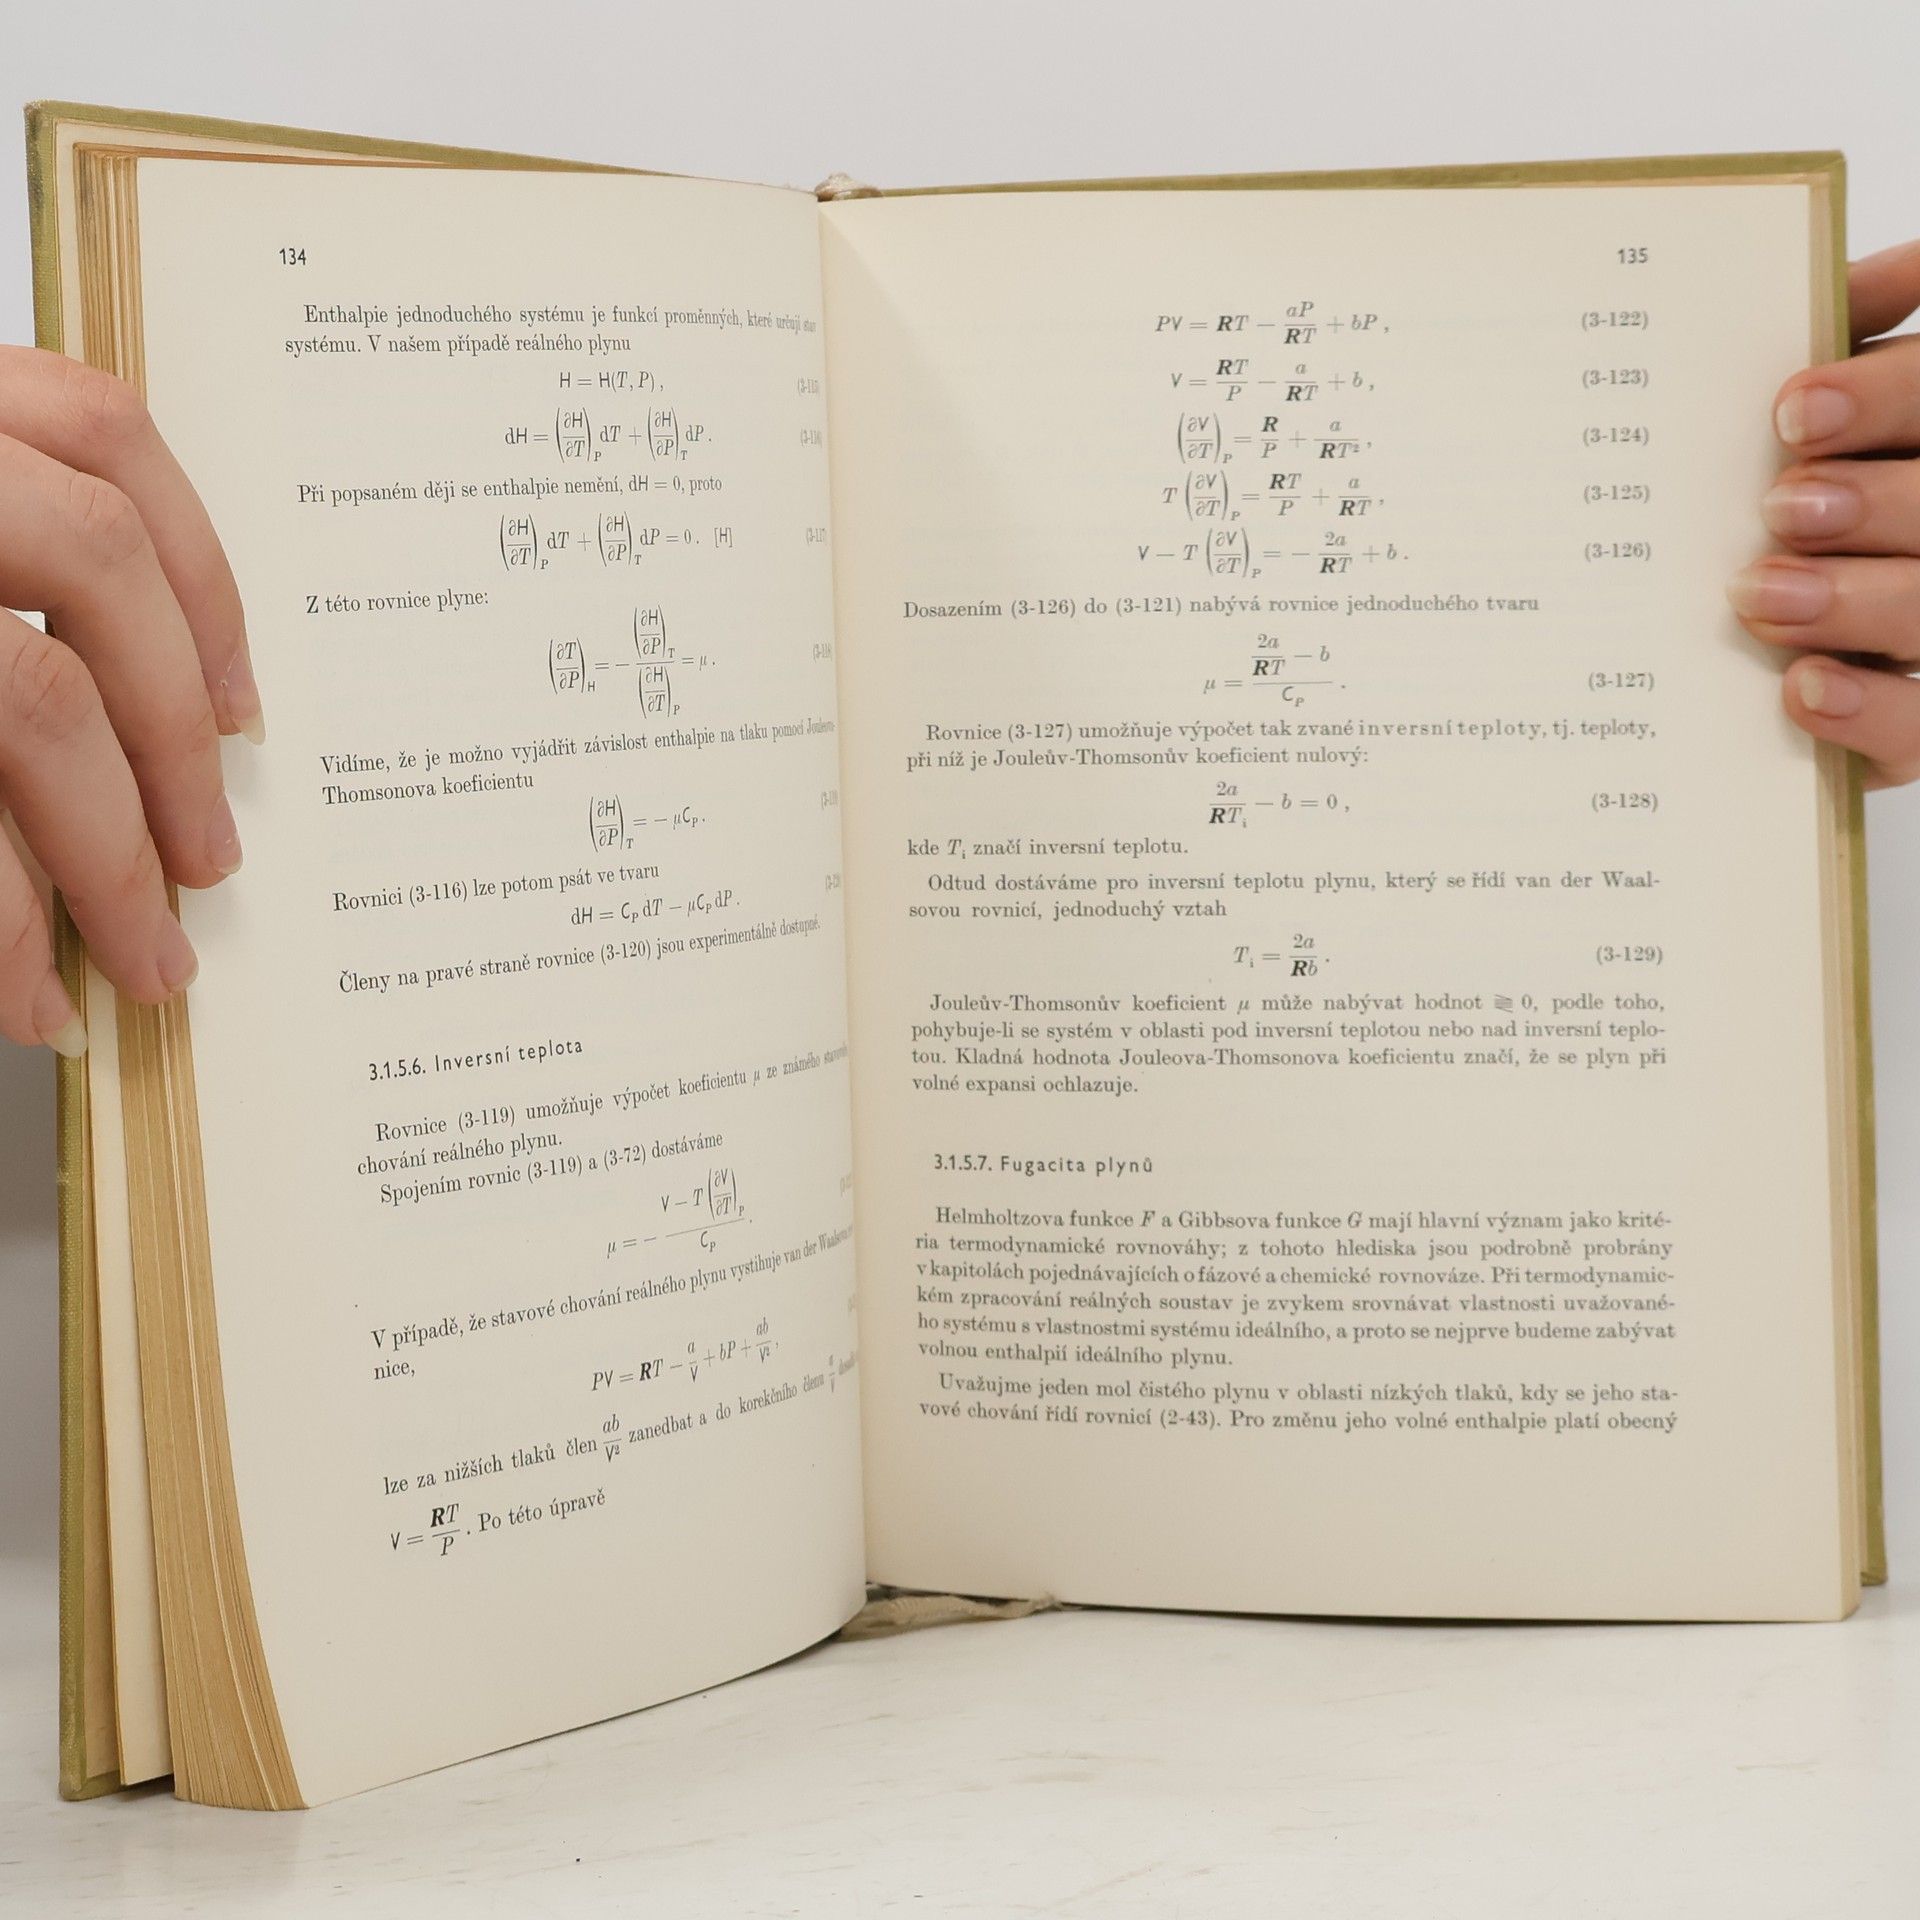 134
Enthalpie jednoduchého systému je funkcí proměnných, které určují stav
systému. V našem případě reálného plynu
H = H(T, P) , (3-115)
dH = (∂H/∂T)_P dT + (∂H/∂P)_T dP . (3-116)
Při popsaném ději se enthalpie nemění, dH = 0, proto
(∂H/∂T)_P dT + (∂H/∂P)_T dP = 0 . [H] (3-117)
Z této rovnice plyne:
(∂T/∂P)_H = − (∂H/∂P)_T / (∂H/∂T)_P = μ . (3-118)
Vidíme, že je možno vyjádřit závislost enthalpie na tlaku pomocí Jouleova-
Thomsonova koeficientu
(∂H/∂P)_T = − μC_P . (3-119)
Rovnici (3-116) lze potom psát ve tvaru
dH = C_P dT − μC_P dP . (3-120)
Členy na pravé straně rovnice (3-120) jsou experimentálně dostupné.
3.1.5.6. Inversní teplota
Rovnice (3-119) umožňuje výpočet koeficientu μ ze známého stavového
chování reálného plynu.
Spojením rovnic (3-119) a (3-72) dostáváme
μ = − (V − T (∂V/∂T)_P) / C_P .
V případě, že stavové chování reálného plynu vystihuje van der Waalsova
nice,
PV = RT − a/V + bP + ab/V² ,
lze za nižších tlaků člen ab/V² zanedbat a do korekčního členu a/V
V = RT/P . Po této úpravě
135
PV = RT − aP/RT + bP , (3-122)
V = RT/P − a/RT + b , (3-123)
(∂V/∂T)_P = R/P + a/RT² , (3-124)
T (∂V/∂T)_P = RT/P + a/RT , (3-125)
V − T (∂V/∂T)_P = − 2a/RT + b . (3-126)
Dosazením (3-126) do (3-121) nabývá rovnice jednoduchého tvaru
μ = (2a/RT − b) / C_P . (3-127)
Rovnice (3-127) umožňuje výpočet tak zvané inversní teploty, tj. teploty,
při níž je Jouleův-Thomsonův koeficient nulový:
2a/RT_i − b = 0 , (3-128)
kde T_i značí inversní teplotu.
Odtud dostáváme pro inversní teplotu plynu, který se řídí van der Waal-
sovou rovnicí, jednoduchý vztah
T_i = 2a/Rb . (3-129)
Jouleův-Thomsonův koeficient μ může nabývat hodnot ⪌ 0, podle toho,
pohybuje-li se systém v oblasti pod inversní teplotou nebo nad inversní teplo-
tou. Kladná hodnota Jouleova-Thomsonova koeficientu značí, že se plyn při
volné expansi ochlazuje.
3.1.5.7. Fugacita plynů
Helmholtzova funkce F a Gibbsova funkce G mají hlavní význam jako krité-
ria termodynamické rovnováhy; z tohoto hlediska jsou podrobně probrány
v kapitolách pojednávajících o fázové a chemické rovnováze. Při termodynamic-
kém zpracování reálných soustav je zvykem srovnávat vlastnosti uvažované-
ho systému s vlastnostmi systému ideálního, a proto se nejprve budeme zabývat
volnou enthalpií ideálního plynu.
Uvažujme jeden mol čistého plynu v oblasti nízkých tlaků, kdy se jeho sta-
vové chování řídí rovnicí (2-43). Pro změnu jeho volné enthalpie platí obecný